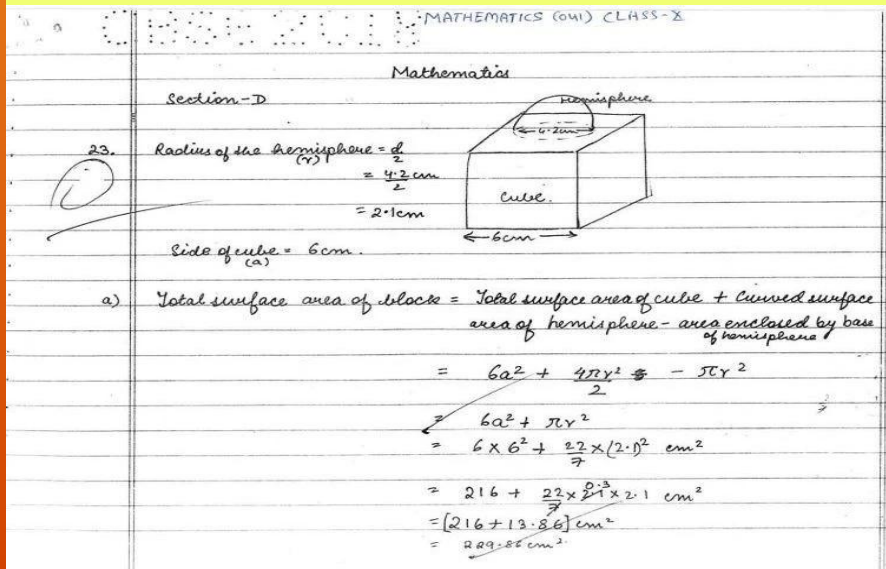 CBSE 2018 MATHEMATICS (041) CLASS-X
Mathematics
Section-D
Hemisphere
4.2cm
23. Radius of the hemisphere = d/2
(r)
= 4.2 cm/2
= 2.1cm
Cube.
6cm
Side of cube = 6cm.
(a)
a) Total surface area of block = Total surface area of cube + Curved surface
area of hemisphere - area enclosed by base
of hemisphere
= 6a² + 4πr²/2 - πr²
= 6a² + πr²
= 6 x 6² + 22/7 x (2.1)² cm²
= 216 + 22/7 x 2.1 x 2.1 cm²
0.3
= [216 + 13.86] cm²
= 229.86 cm²